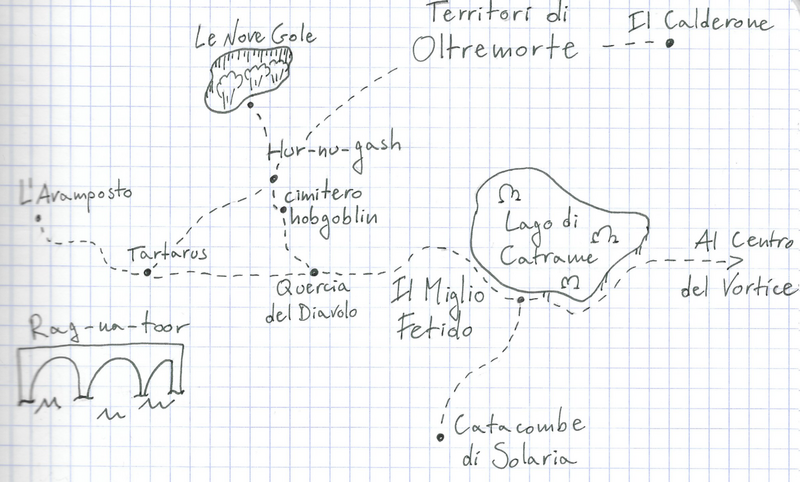 Territori di
Oltremorte
Il Calderone
Le Nove Gole
Hur-nu-gash
cimitero
hobgoblin
L'Avamposto
Tartarus
Quercia
del Diavolo
Lago di
Catrame
Il Miglio
Fetido
Al Centro
del Vortice
Rag-na-toor
Catacombe
di Solaria